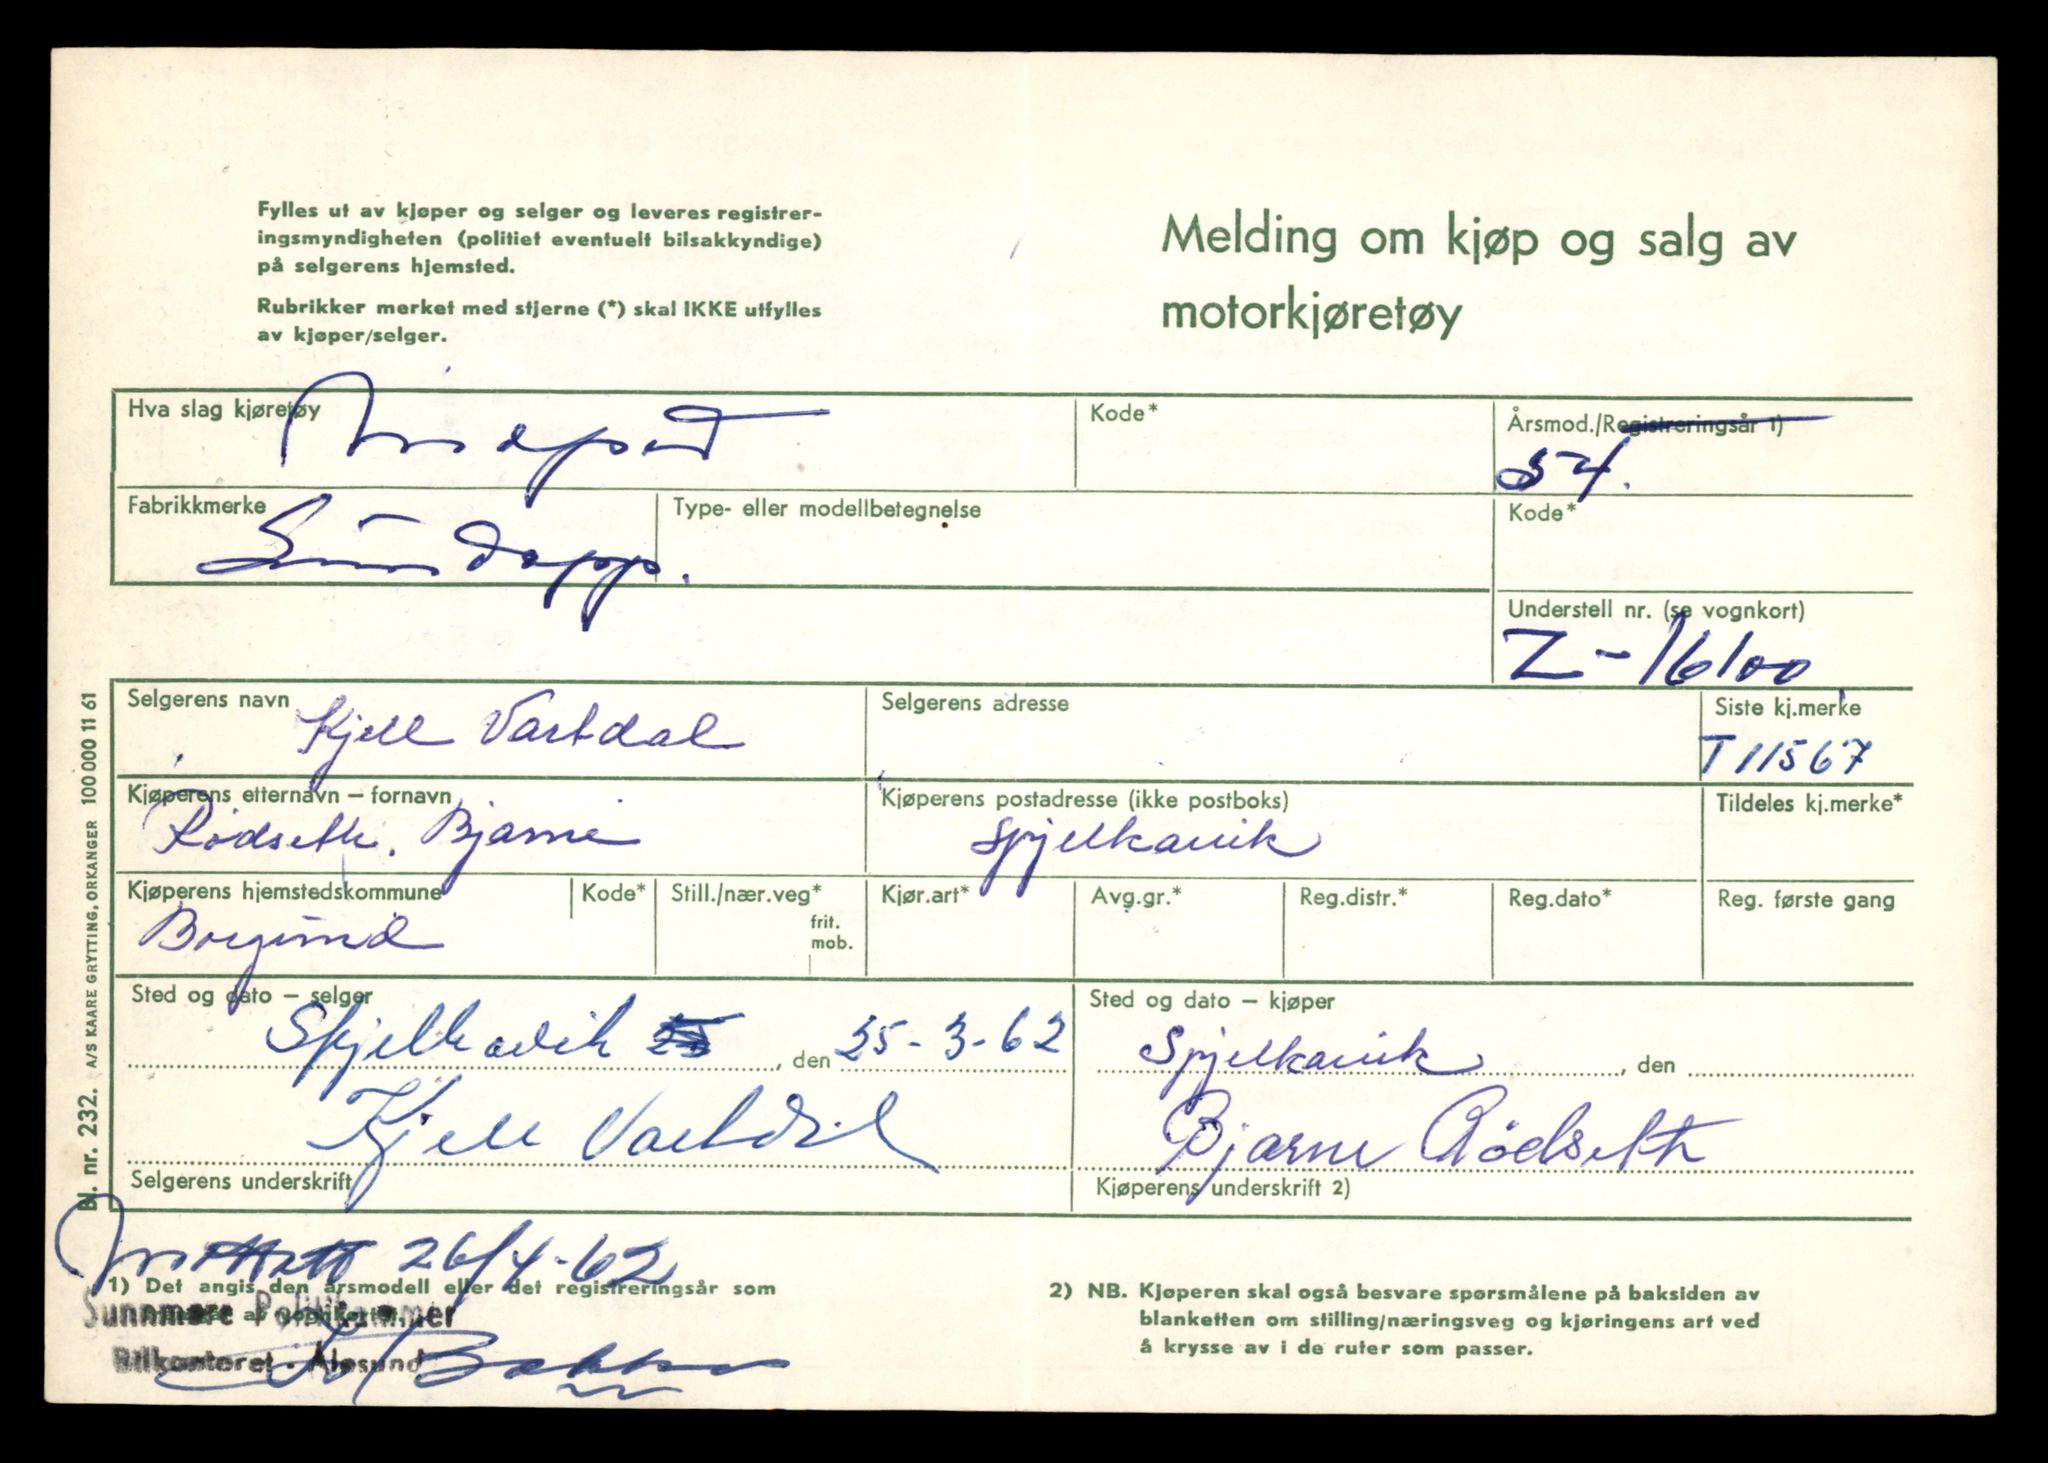 Fylles ut av kjøper og selger og leveres registrer-
ingsmyndigheten (politiet eventuelt bilsakkyndige)
på selgerens hjemsted.
Rubrikker merket med stjerne (*) skal IKKE utfylles
av kjøper/selger.
Melding om kjøp og salg av
motorkjøretøy
Hva slag kjøretøy
Moped
Kode*
Årsmod./Registreringsår 1)
54.
Fabrikkmerke
Zündapp.
Type- eller modellbetegnelse
Kode*
Understell nr. (se vognkort)
Z-16100
Selgerens navn
Kjell Vartdal
Selgerens adresse
Siste kj.merke
T 11567
Kjøperens etternavn – fornavn
Rødseth, Bjarne
Kjøperens postadresse (ikke postboks)
Spjelkavik
Tildeles kj.merke*
Kjøperens hjemstedskommune
Borgund
Kode*
Still./nær.veg*
frit.
mob.
Kjør.art*
Avg.gr.*
Reg.distr.*
Reg.dato*
Reg. første gang
Sted og dato – selger
Spjelkavik, den 25-3-62
Kjell Vartdal
Selgerens underskrift
Sted og dato – kjøper
Spjelkavik, den
Bjarne Rødseth
Kjøperens underskrift 2)
Bl. nr. 232. A/S KAARE GRYTTING, ORKANGER 100 000 11 61
Mottatt 26/4-62
1) Det angis den årsmodell eller det registreringsår som
av vognkortet.
Sunnmøre Politikammer
Bilkontoret - Ålesund
2) NB. Kjøperen skal også besvare spørsmålene på baksiden av
blanketten om stilling/næringsveg og kjøringens art ved
å krysse av i de ruter som passer.